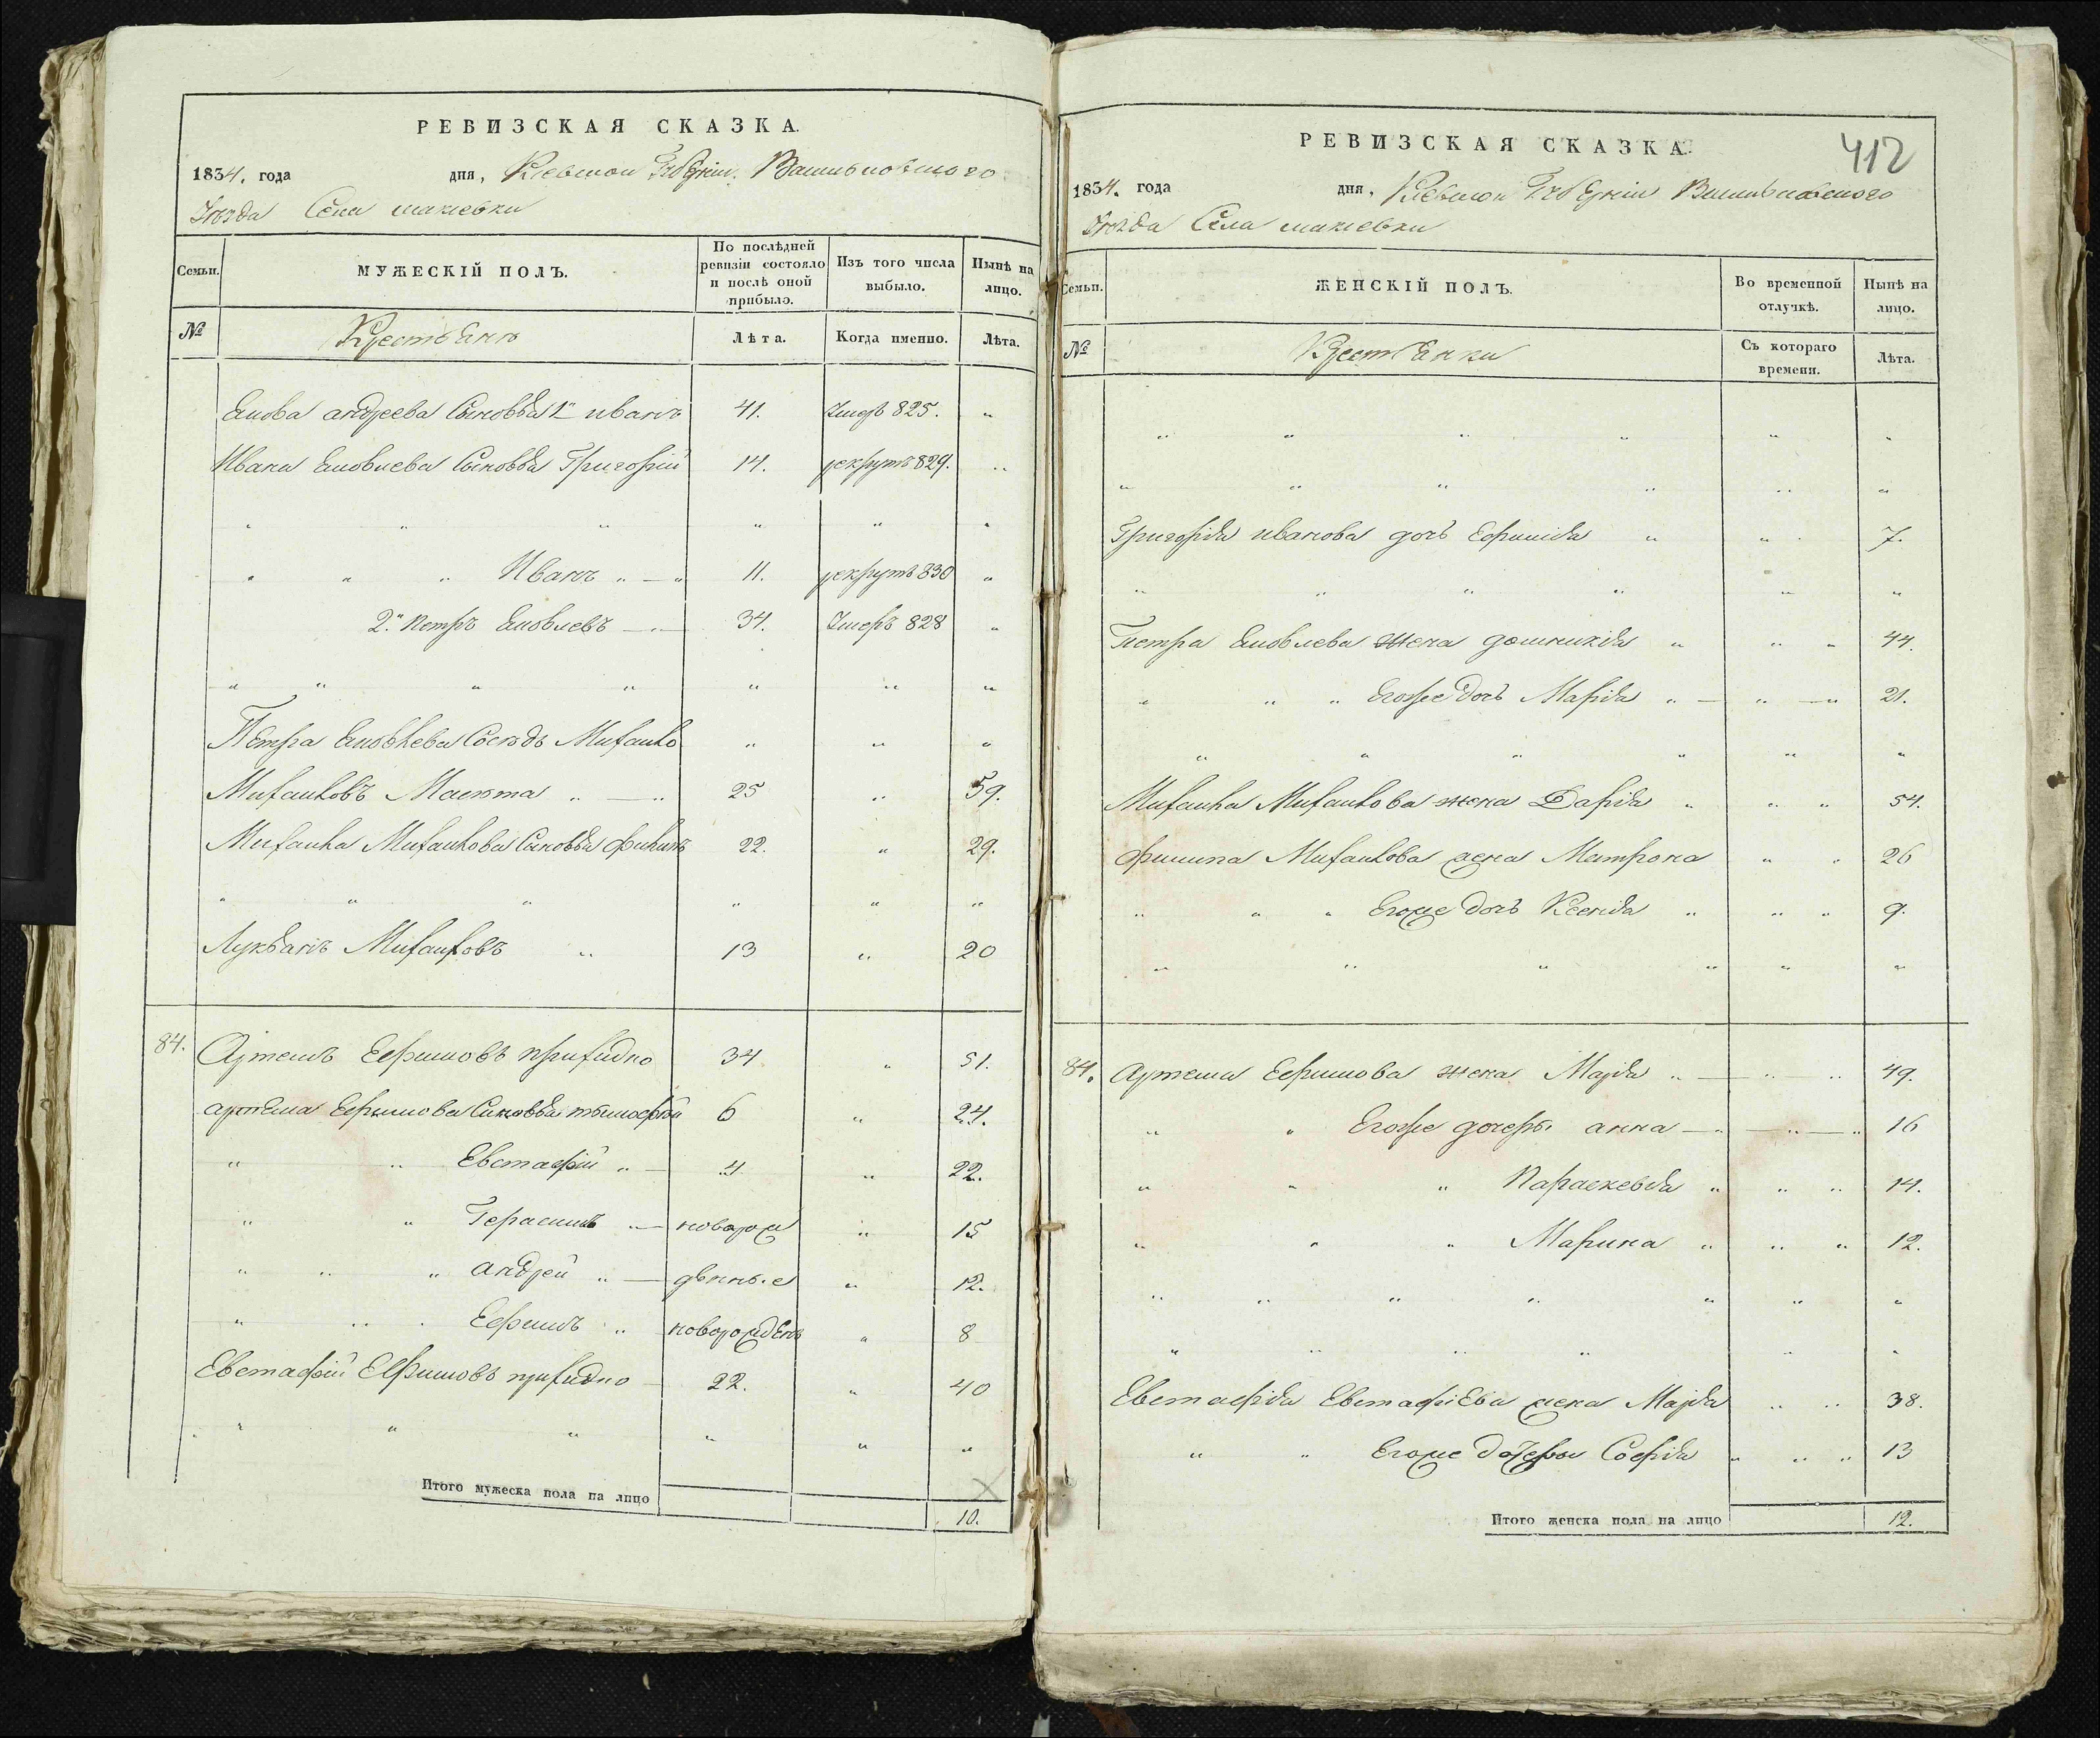 РЕВИЗСКАЯ СКАЗКА.
1834. года дня, Кіевской Губерніи Васильковского
Уезда Села макіевки
Семьи. МУЖЕСКІЙ ПОЛЪ. По послѣдней ревизіи состояло и послѣ оной прибыло. Изъ того числа выбыло. Нынѣ на лицо.
№ Крестьянъ Лѣта. Когда именно. Лѣта.
Якова андреева Сыновья 1й иванъ 41. Умеръ 825. "
Ивана Яковлева Сыновья Григорій 14. рекрутъ 829. "
" " " " " "
" " " Иванъ " — " 11. рекрутъ 830 "
2й петръ Яковлевъ — " — 34. Умеръ 828 "
" " " " " " "
Петра Яковлева Соседъ Михайло " " "
Михайловъ " — " 25 " 59.
Михайла Михайлова Сыновья филипъ 22. " 29.
" " " " " "
Лукьянъ Михайловъ " 13 " 20
84. Артемъ Ефимовъ прихидко 34 " 51.
артема Ефимова Сыновья тымофей 6 " 24.
" " Евстафій " — 4 " 22.
" " Герасимъ " — новорож " 15
" " " андрей " — денные " 12.
" " " Ефимъ " новорожденъ " 8
Евстафій Ефимовъ прихидко 22. " 40
" " " " " " "
Итого мужеска пола на лицо 10.
РЕВИЗСКАЯ СКАЗКА.
412
1834. года дня, Кіевской Губерніи Васильковского
Уезда Села макіевки
Семьи. ЖЕНСКІЙ ПОЛЪ. Во временной отлучкѣ. Нынѣ на лицо.
№ Крестьянки Съ котораго времени. Лѣта.
" " " " " "
" " " " " "
Григорія иванова дочь Ефимія " " " 7.
" " " " " "
Петра Яковлева жена домникія " " " 44.
" " " Егоже дочь Марія " — " — " 21.
" " " " " "
Михайла Михайлова жена Дарія " " " 54.
филипа Михайлова жена Матрона " " 26
" " " Егоже дочь Ксенія " " " 9.
" " " " " "
84. Артема Ефимова жена Марія " — " " 49.
" " Егоже дочери анна — " — " — " 16
" " " Параскевія " " " 14.
" " " Марина " " " 12.
" " " " " " "
" " " " " "
Евстафія Евстафіева жена Марія " " 38.
" " Егоже дочери Софія " " " 13
Итого женска пола на лицо 12.